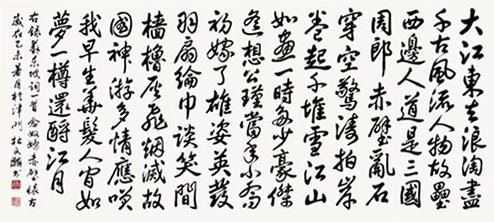 大江東去浪淘盡
千古風流人物故壘
西邊人道是三國
周郎赤壁亂石
穿空驚濤拍岸
卷起千堆雪江山
如畫一時多少豪傑
遙想公瑾當年小喬
初嫁了雄姿英發
羽扇綸巾談笑間
檣櫓灰飛烟滅故
國神游多情應笑
我早生華髮人間如
夢一樽還酹江月
右録蘇東坡詞一首念奴嬌赤壁懷古
歲在乙未暑月於津門杜文書